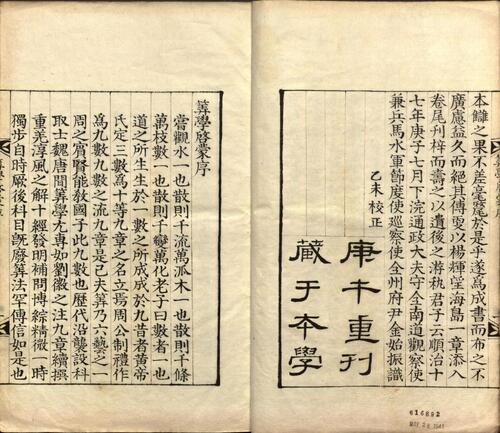 本讎之果不差毫釐於是乎遂爲成書而布之不
廣慮益久而絕其傳更以楊輝望海島一章添入
卷尾刋梓而壽之以遺後之游執君子云順治十
七年庚子七月下浣通政大夫守全南道觀察使
兼兵馬水軍節度使巡察使全州府尹金始振識
乙未校正
庚午重刊
藏于本學
616892
筭學啓蒙序
嘗觀水一也散則千流萬派木一也散則千條
萬枝數一也散則千變萬化老子曰數者一也
道之所生生於一數之所成成於九昔者黃帝
氏定三數爲十等九章之名立焉周公制禮作
爲九數九數之流九章是已夫筭乃六藝之一
周之賔賢能教國子此九數也歷代沿襲設科
取士魏唐間筭學尤專如劉徽之注九章續撰
重差淳風之解十經發明補問博綜精微一時
獨步自時厥後科目旣廢筭法罕傳信如是也